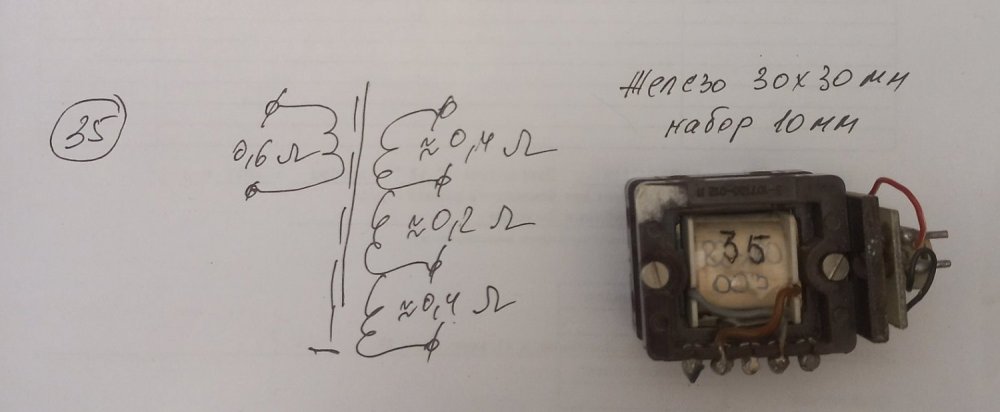 35
0,6 Ω
≈0,4 Ω
≈0,2 Ω
≈0,4 Ω
Железо 30х30мм
набор 10мм
35
003